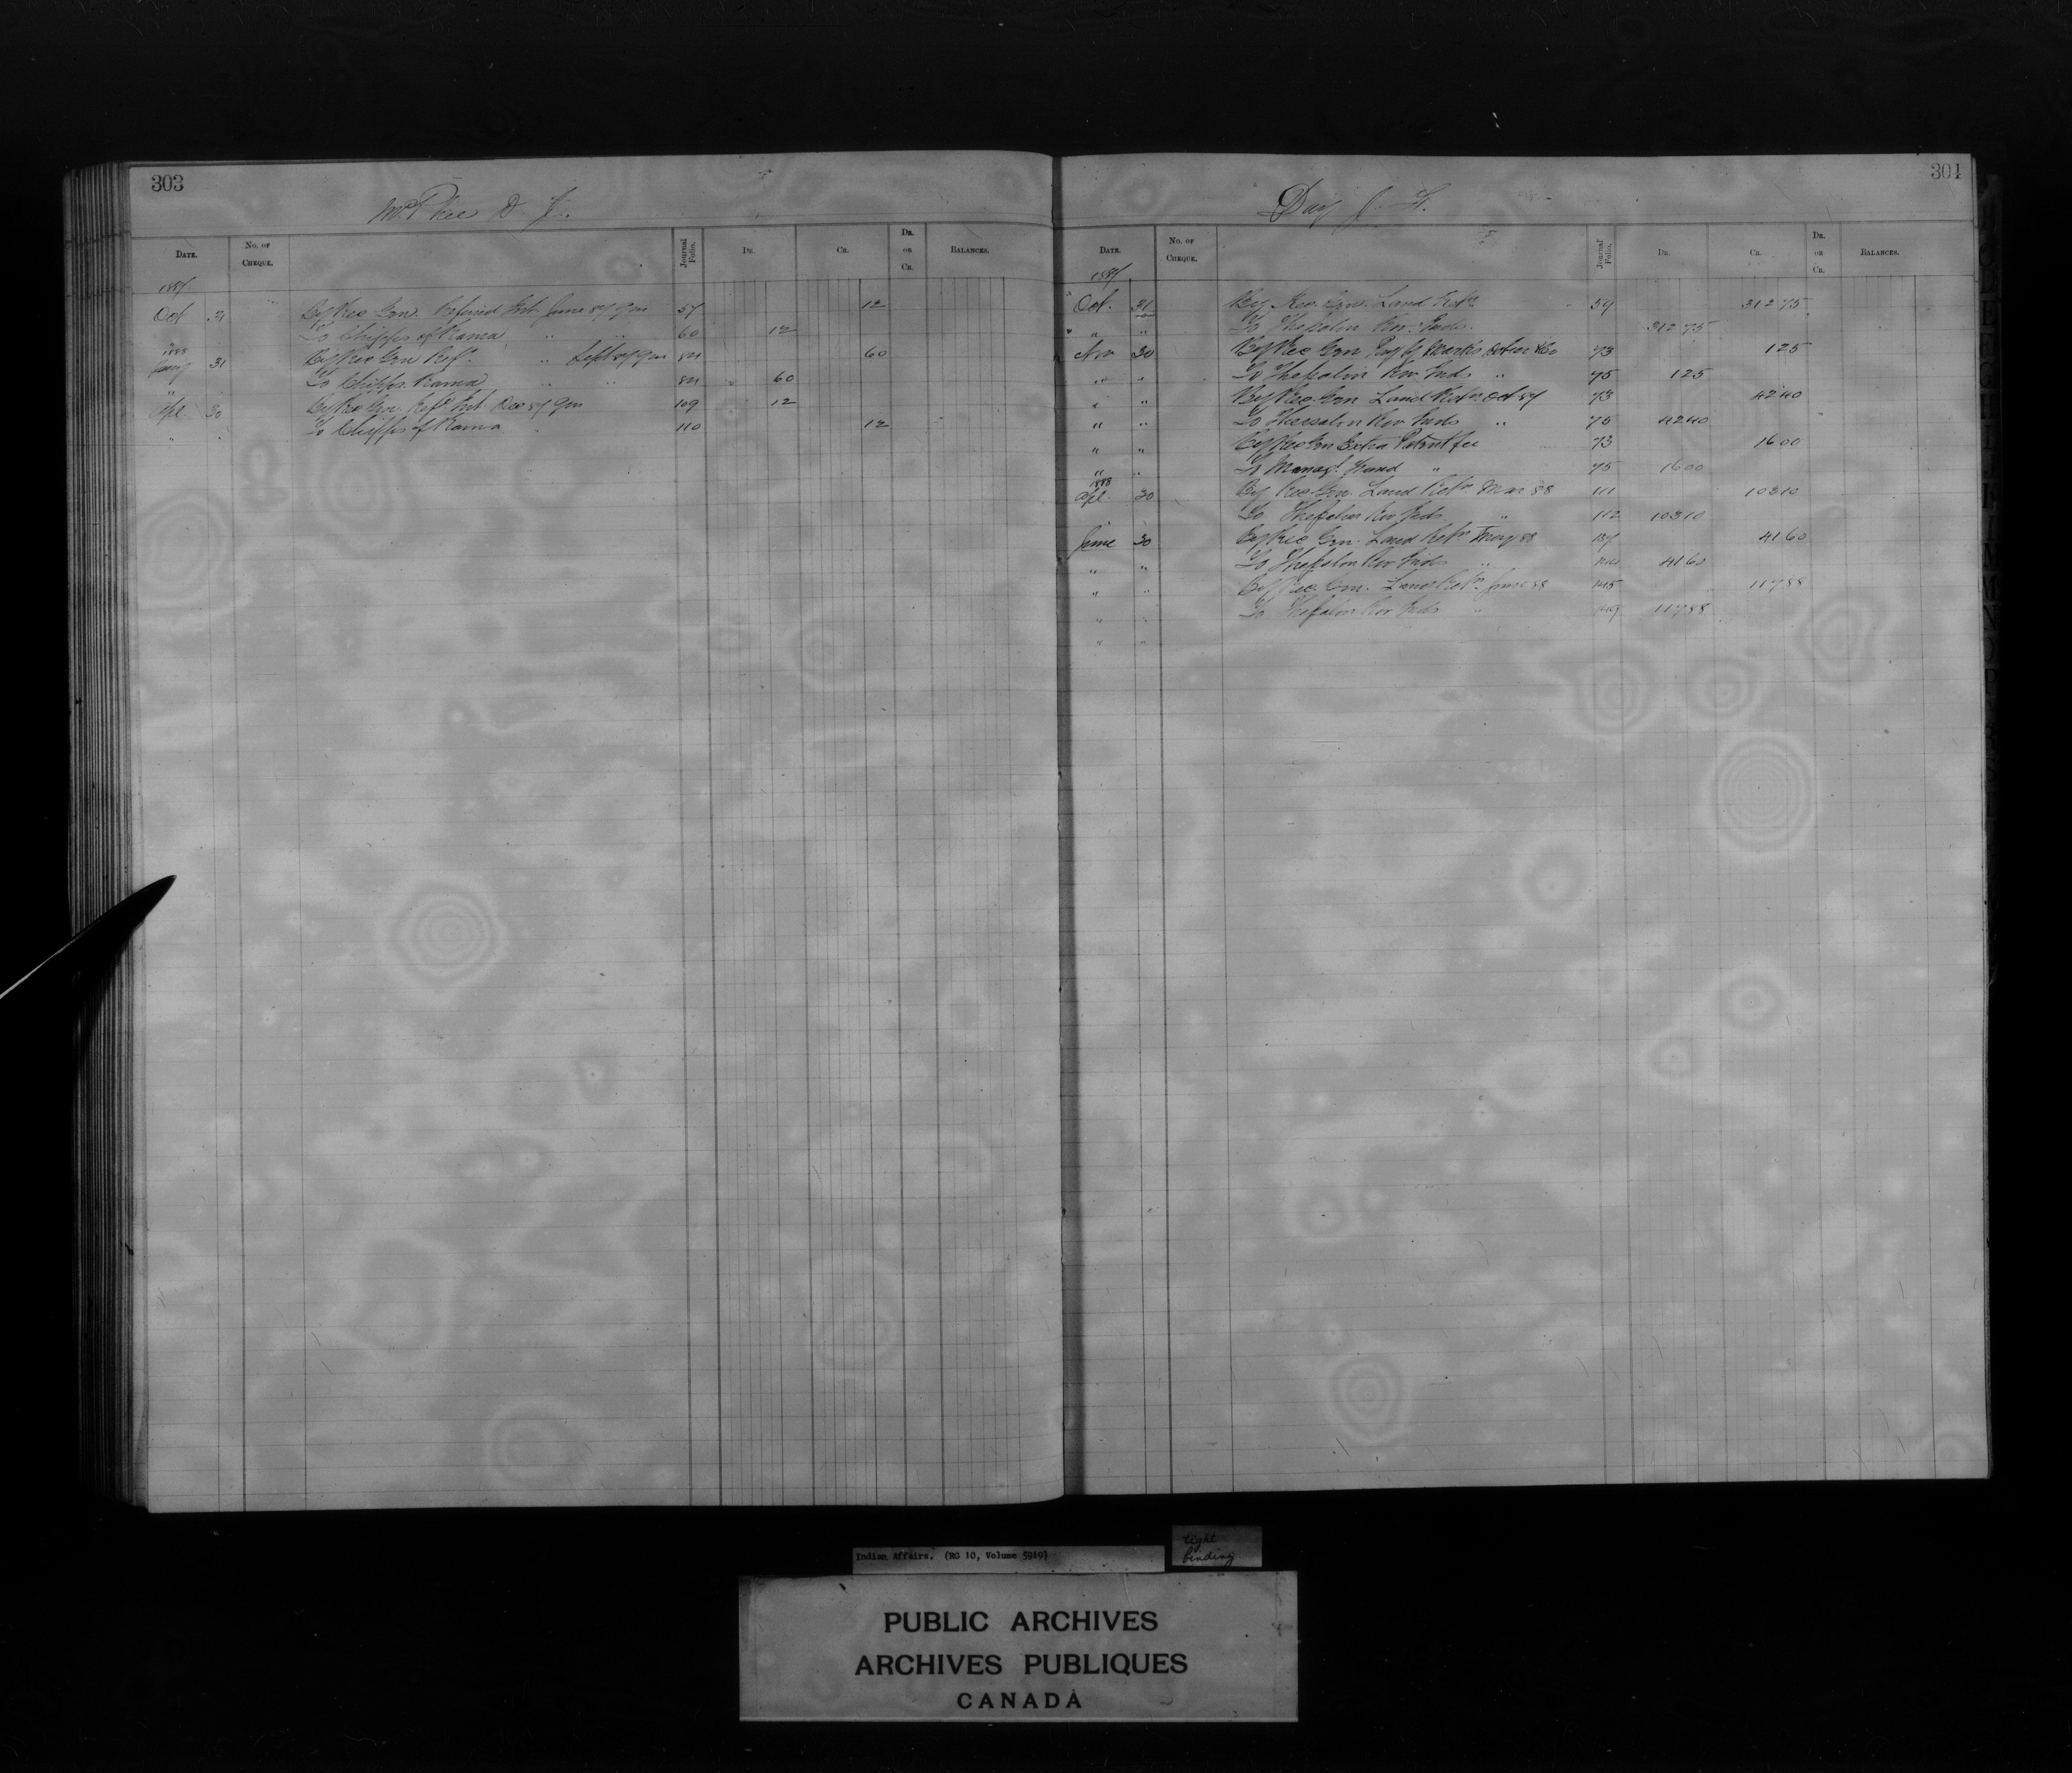 303
McPhee D. J.
DATE.
No. of CHEQUE.
Journal Folio.
DR.
CR.
DR. OR CR.
BALANCES.
1887
Oct 31 By Rec Gen. Refund Int June 87 57 12
To Chippa of Rama " " 60 12
1888
Jany 31 By Rec Gen Ref. " Sept 87 84 60
To Chippa Rama " " 84 60
Apl. 30 By Rec Gen. Ref. Int Dec 87 109 12
" " To Chippa of Rama " 110 12
304
Day J. H.
DATE.
No. of CHEQUE.
Journal Folio.
DR.
CR.
DR. OR CR.
BALANCES.
1887
Oct. 31 By Rec. Gen. Land Retn 59 312 75
" " To Thessalon Riv. Inds. 312 75
Nov 30 By Rec Gen 73 1 25
" " To Thessalon Riv. Inds " 75 1 25
" " By Rec. Gen Land Retn Oct 87 73 42 40
" " To Thessalon Riv Inds " 75 42 40
" " By Rec Gen Extra Patent fee 73 16 00
" " To Managt. Fund " 75 16 00
1888
Apl. 30 By Rec. Gen. Land Retn Mar 88 111 103 10
To Thessalon Riv Inds " 112 103 10
June 30 By Rec Gen. Land Retn May 88 41 60
" " To Thessalon Riv Inds " 41 60
" " By Rec. Gen. Land Retn June 88 145 117 88
" " To Thessalon Riv Inds " 149 117 88
" "
Indian Affairs. (RG 10, Volume 5919)
tight
binding
PUBLIC ARCHIVES
ARCHIVES PUBLIQUES
CANADA